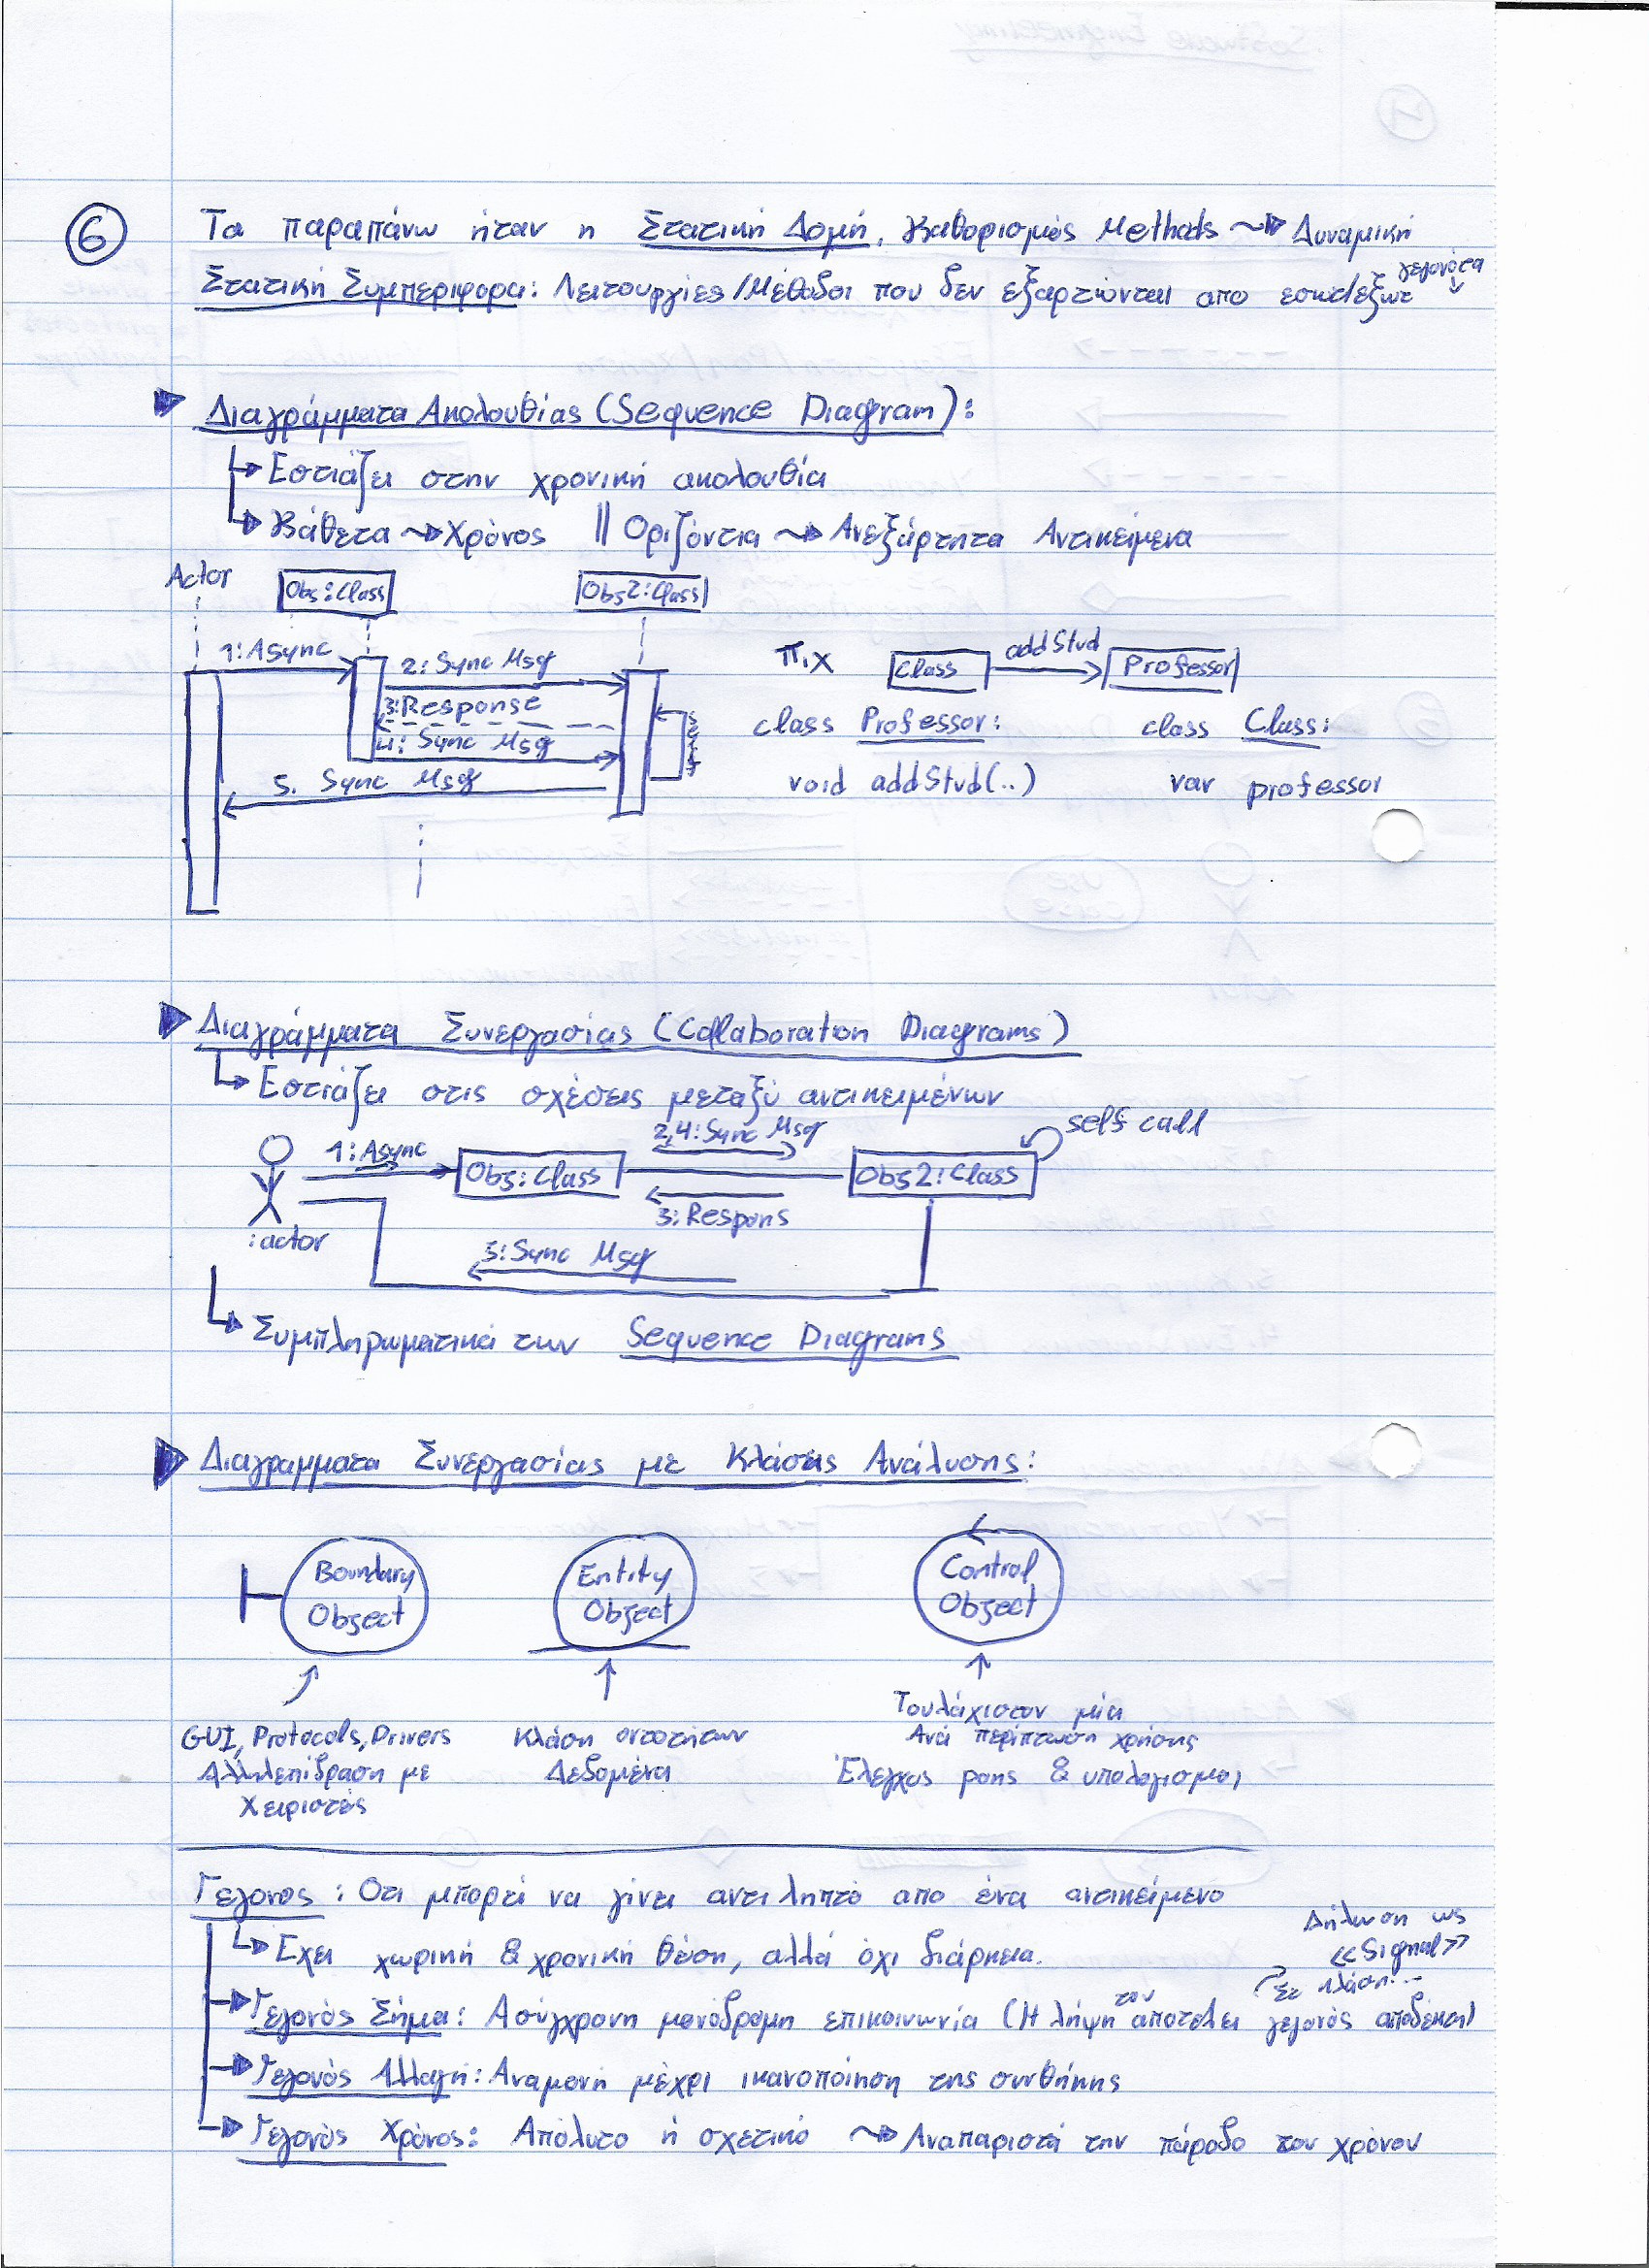 6
Τα παραπάνω ήταν η Στατική Δομή, Καθορισμός Methods ~> Δυναμική
Στατική Συμπεριφορα: Λειτουργίες/Μέθοδοι που δεν εξαρτιόνται απο εσωτ/εξωτ γεγονότα
Διαγράμματα Ακολουθίας (Sequence Diagram):
Εστιάζει στην χρονική ακολουθία
Κάθετα ~> Χρόνος || Οριζόντια ~> Ανεξάρτητα Αντικείμενα
Actor Obj:Class Obj2:Class
1:Async 2: Sync Msg
3:Response
4: Sync Msg
5. Sync Msg
self
π.χ Class addStud Professor
class Professor: class Class:
void addStud(..) var professor
Διαγράμματα Συνεργασίας (Collaboration Diagrams)
Εστιάζει στις σχέσεις μεταξύ αντικειμένων
1:Async 2,4:Sync Msg self call
Obj:Class Obj2:Class
3:Respons
:actor
5:Sync Msg
Συμπληρωματικά των Sequence Diagrams
Διαγραμματα Συνεργασίας με Κλάσεις Ανάλυσης:
Boundary Object
Entity Object
Control Object
GUI, Protocols, Drivers
Αλληλεπίδραση με
Χειριστές
Κλάση οντοτήτων
Δεδομένα
Τουλάχιστον μία
Ανά περίπτωση χρήσης
Έλεγχος ροης & υπολογισμοι
Γεγονος: Οτι μπορεί να γίνει αντιληπτό απο ένα αντικείμενο
Εχει χωρική & χρονική θέση, αλλά όχι διάρκεια.
Δήλωση ως
<<Signal>>
σε κλάση..
Γεγονός Σήμα: Ασύγχρονη μονόδρομη επικοινωνία (Η λήψη του αποτελει γεγονός αποδέκτη)
Γεγονός Αλλαγή: Αναμονή μέχρι ικανοποίηση της συνθήκης
Γεγονός Χρόνος: Απόλυτο ή σχετικό ~> Αναπαριστά την πάροδο του χρόνου